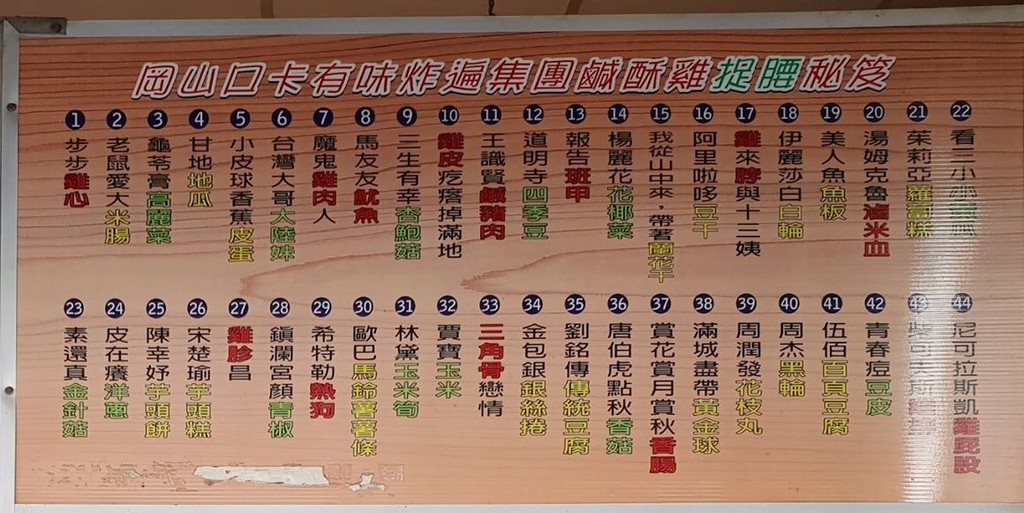 岡山口卡有味炸遍集團鹹酥雞捉腰秘笈
1 步步雞心
2 老鼠愛大米腸
3 龜苓膏高麗菜
4 甘地地瓜
5 小皮球香蕉皮蛋
6 台灣大哥大陸妹
7 魔鬼雞肉人
8 馬友友魷魚
9 三生有幸杏鮑菇
10 雞皮疙瘩掉滿地
11 王識賢鹹豬肉
12 道明寺四季豆
13 報告班甲
14 楊麗花花椰菜
15 我從山中來，帶著蘭花干
16 阿里啦哆豆干
17 雞來脖與十三姨
18 伊麗莎白白輪
19 美人魚魚板
20 湯姆克魯滷米血
21 茱莉亞蘿蔔糕
22 看三小小
23 素還真金針菇
24 皮在癢洋蔥
25 陳幸妤芋頭餅
26 宋楚瑜芋頭糕
27 雞胗昌
28 鎮瀾宮顏青椒
29 希特勒熱狗
30 歐巴馬鈴薯薯條
31 林黛玉米筍
32 賈寶玉米
33 三角骨戀情
34 金包銀銀絲捲
35 劉銘傳傳統豆腐
36 唐伯虎點秋香菇
37 賞花賞月賞秋香腸
38 滿城盡帶黃金球
39 周潤發花枝丸
40 周杰黑輪
41 伍佰百頁豆腐
42 青春痘豆皮
43 柴可夫斯
44 尼可拉斯凱雞屁股